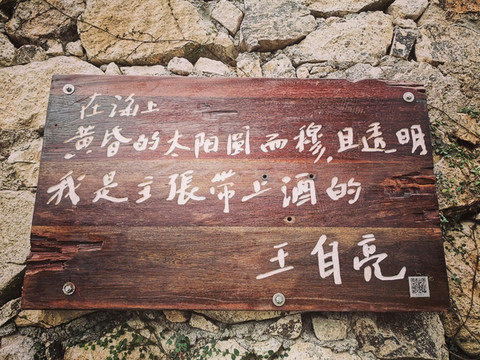 在海上
黄昏的太阳圆而穆,且透明
我是主張带上酒的
王自亮